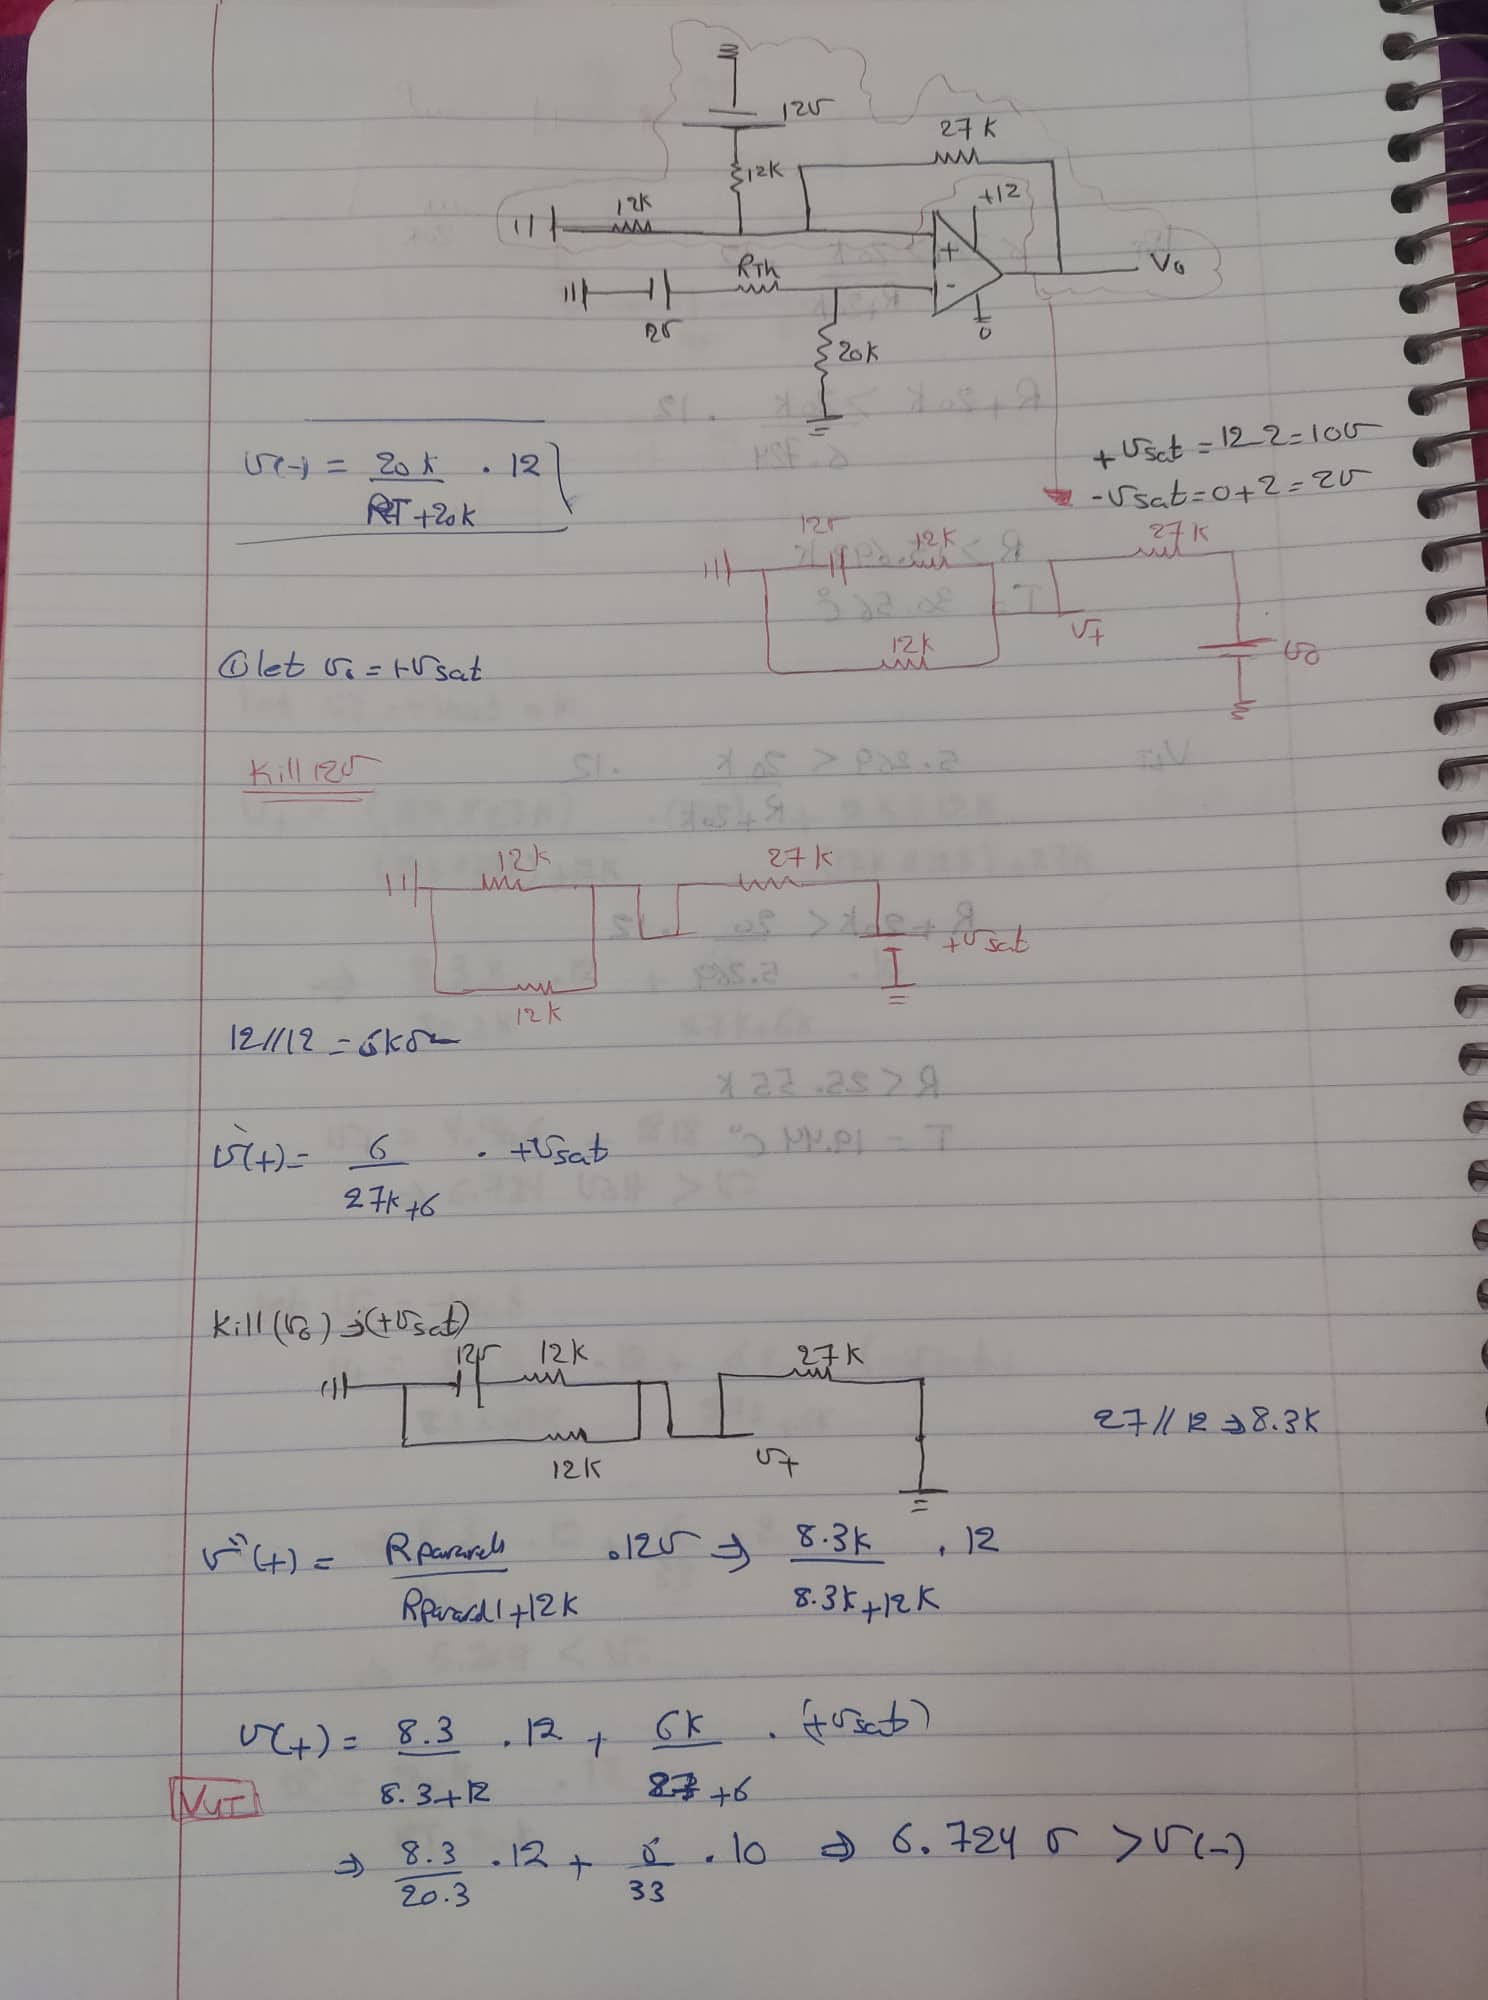 12v
27K
12K
12K
+12
RTh
+
-
Vo
12v
0
20K
v(-) = 20K / RT+20K . 12
+vsat = 12-2 = 10v
-vsat = 0+2 = 2v
12v
12K
27K
12K
v+
vo
① let vo = +vsat
Kill 12v
12K
27K
+vsat
12K
12//12 = 6KΩ
v'(+) = 6 / 27K+6 . +vsat
Kill (vo) → (+vsat)
12v
12K
27K
12K
v+
27//12 ⇒ 8.3K
v''(+) = Rpararel / Rpararel+12K . 12v ⇒ 8.3K / 8.3K+12K . 12
v(+) = 8.3 / 8.3+12 . 12 + 6K / 27+6 . (+vsat)
VUT
⇒ 8.3 / 20.3 . 12 + 6 / 33 . 10 ⇒ 6.724 v > v(-)